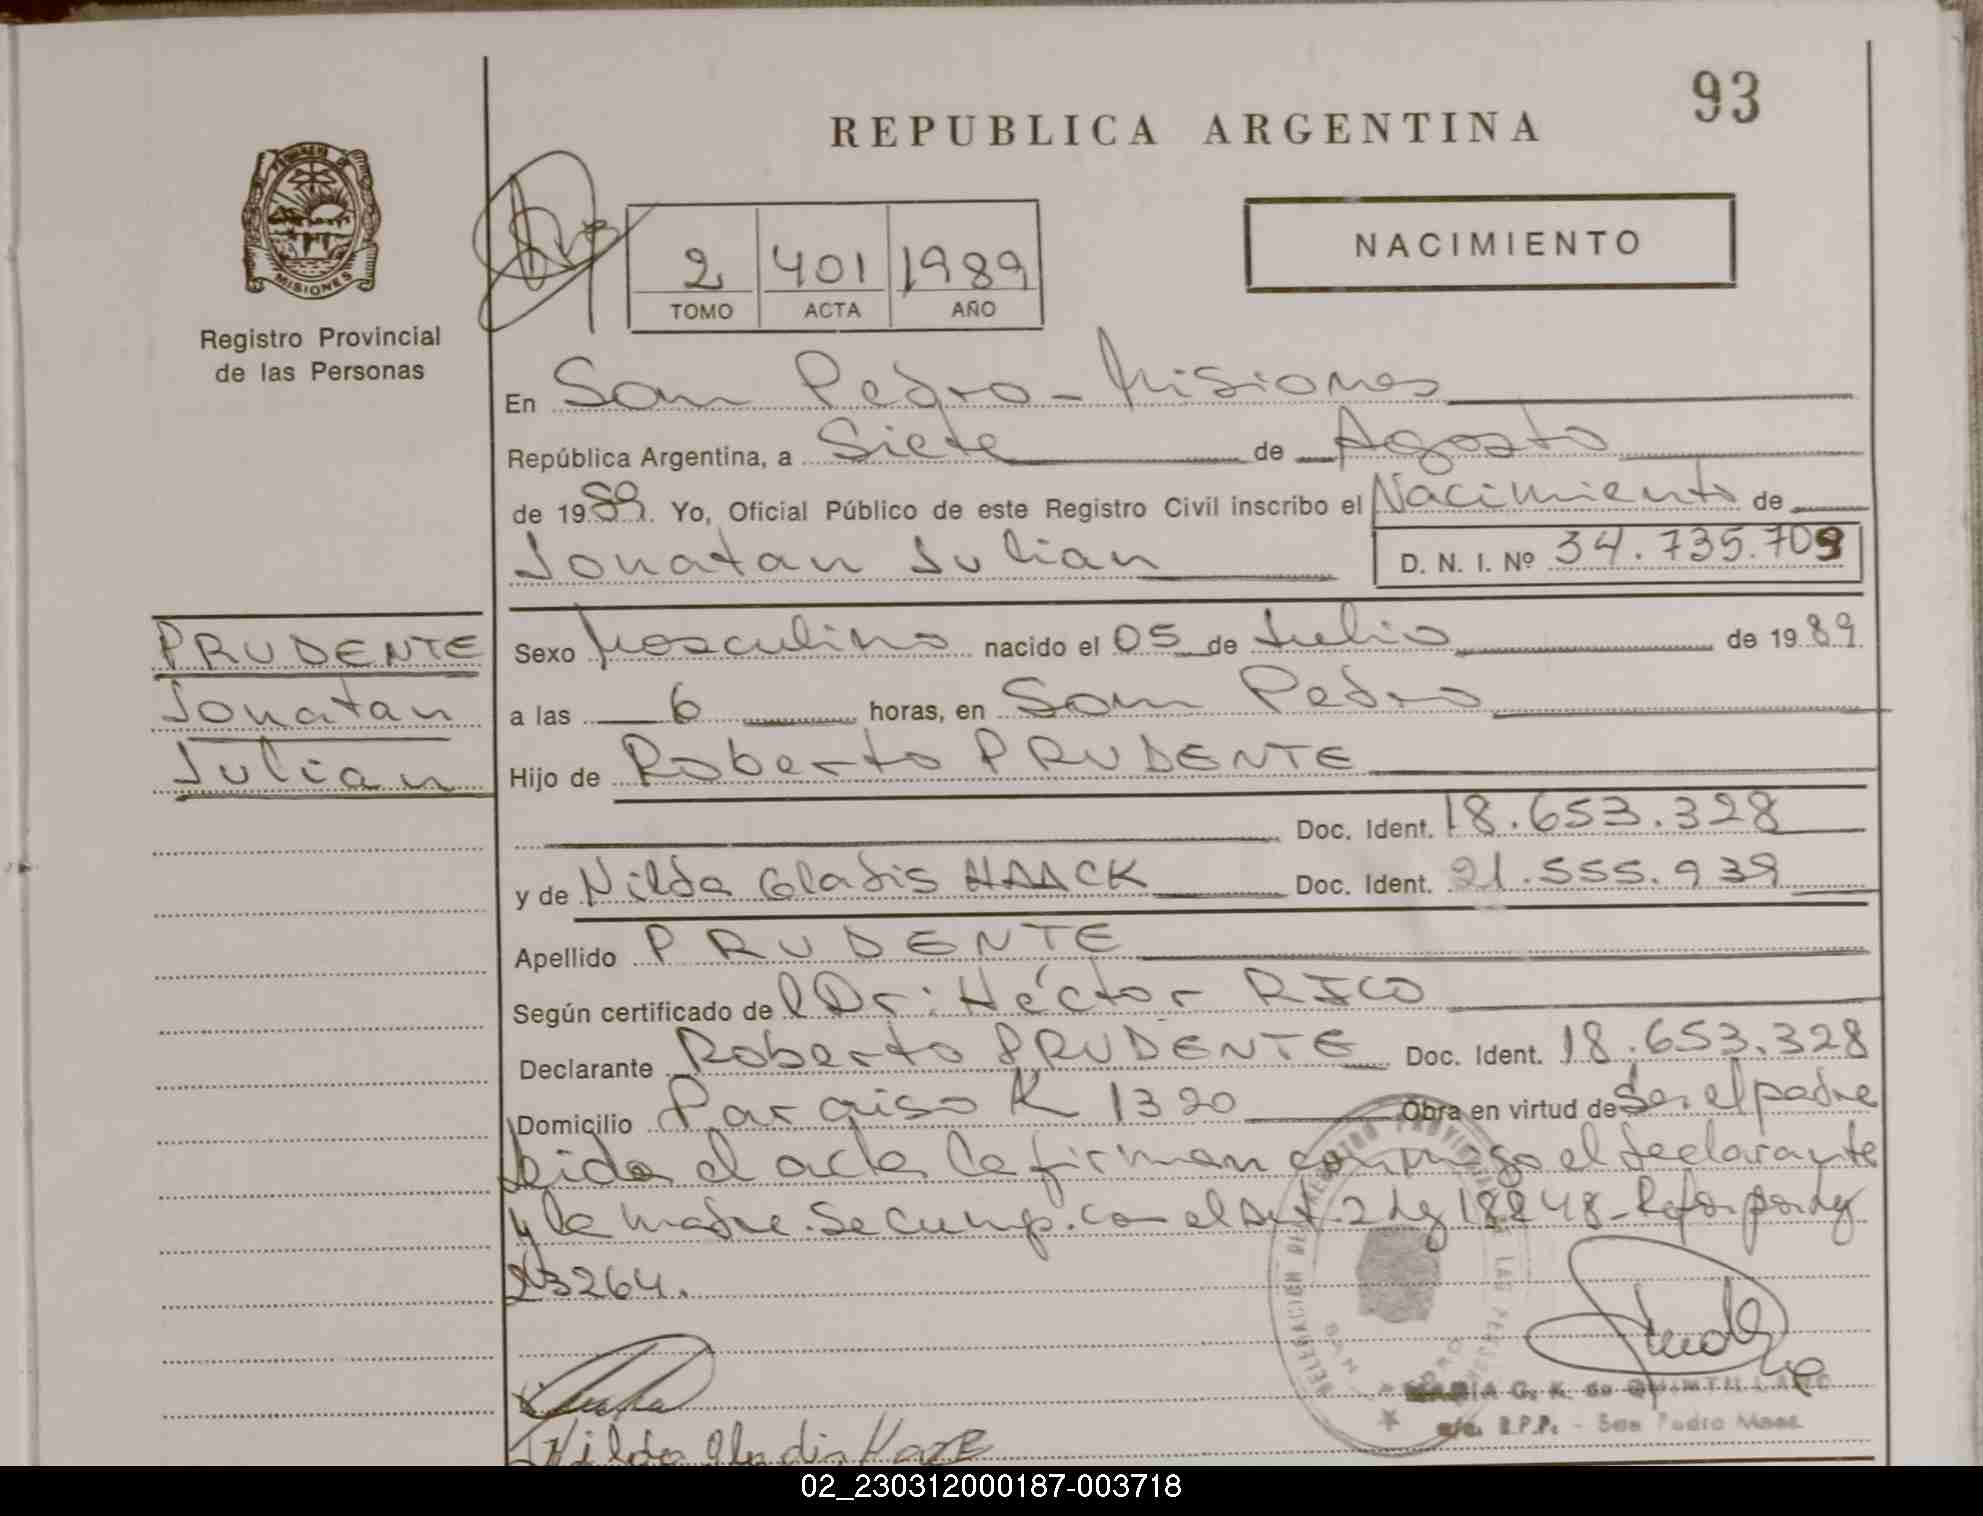 93
REPUBLICA ARGENTINA
NACIMIENTO
MISIONES
Registro Provincial
de las Personas
2 401 1989
TOMO ACTA AÑO
En San Pedro - Misiones
República Argentina, a Siete de Agosto
de 1989. Yo, Oficial Público de este Registro Civil inscribo el Nacimiento de
Jonatan Julian D. N. I. Nº 34.735.709
PRUDENTE
Jonatan
Julian
Sexo Masculino nacido el 05 de Julio de 1989
a las 6 horas, en San Pedro
Hijo de Roberto PRUDENTE
Doc. Ident. 18.653.328
y de Nilda Gladis HAACK Doc. Ident. 21.555.939
Apellido PRUDENTE
Según certificado del Dr: Héctor RICO
Declarante Roberto PRUDENTE Doc. Ident. 18.653.328
Domicilio Paraiso K 1320 Obra en virtud de Ser el padre
Leida el acta la firman conmigo el declarante
y la madre. Se cump. con el Art. 2 Ley 18248 - Ref. por Ley
23264.
DELEGACION DEL REGISTRO PROVINCIAL DE LAS PERSONAS
SAN PEDRO
MARIA G. K. de QUINTILLANO
R.P.P. - San Pedro Mnes.
Nilda Gladis
02_230312000187-003718